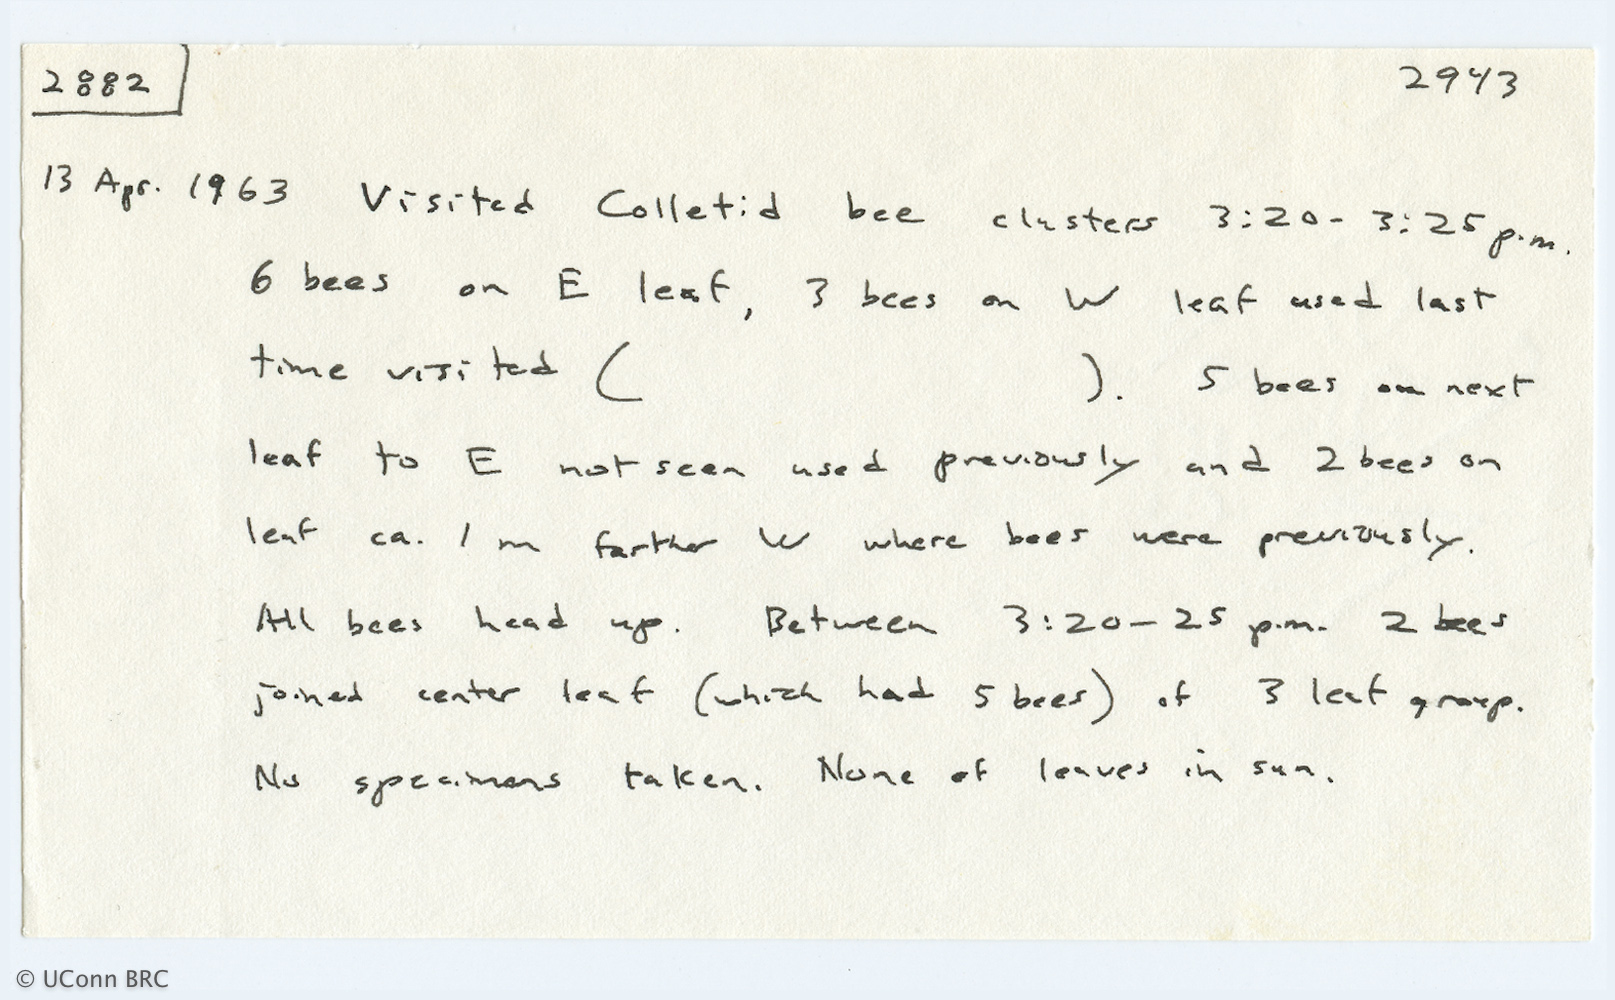 2882
2943
13 Apr. 1963 Visited Colletid bee clusters 3:20-3:25 p.m.
6 bees on E leaf, 3 bees on W leaf used last
time visited ( ). 5 bees on next
leaf to E not seen used previously and 2 bees on
leaf ca. 1 m farther W where bees were previously.
All bees head up. Between 3:20-25 p.m. 2 bees
joined center leaf (which had 5 bees) of 3 leaf group.
No specimens taken. None of leaves in sun.
© UConn BRC